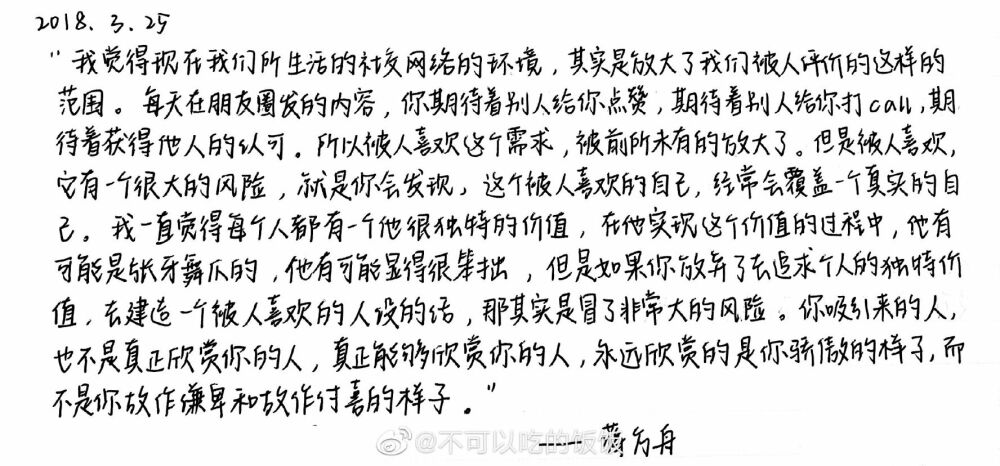 2018.3.25
"我觉得现在我们所生活的社交网络的环境，其实是放大了我们被人评价的这样的
范围。每天在朋友圈发的内容，你期待着别人给你点赞，期待着别人给你打call，期
待着获得他人的认可。所以被人喜欢这个需求，被前所未有的放大了。但是被人喜欢，
它有一个很大的风险，就是你会发现，这个被人喜欢的自己，经常会覆盖一个真实的自
己。我一直觉得每个人都有一个他很独特的价值，在他实现这个价值的过程中，他有
可能是张牙舞爪的，他有可能显得很笨拙，但是如果你放弃了去追求个人的独特价
值，去建造一个被人喜欢的人设的话，那其实是冒了非常大的风险。你吸引来的人，
也不是真正欣赏你的人，真正能够欣赏你的人，永远欣赏的是你骄傲的样子，而
不是你故作谦卑和故作讨喜的样子。"
—— 蒋方舟
@不可以吃的饭